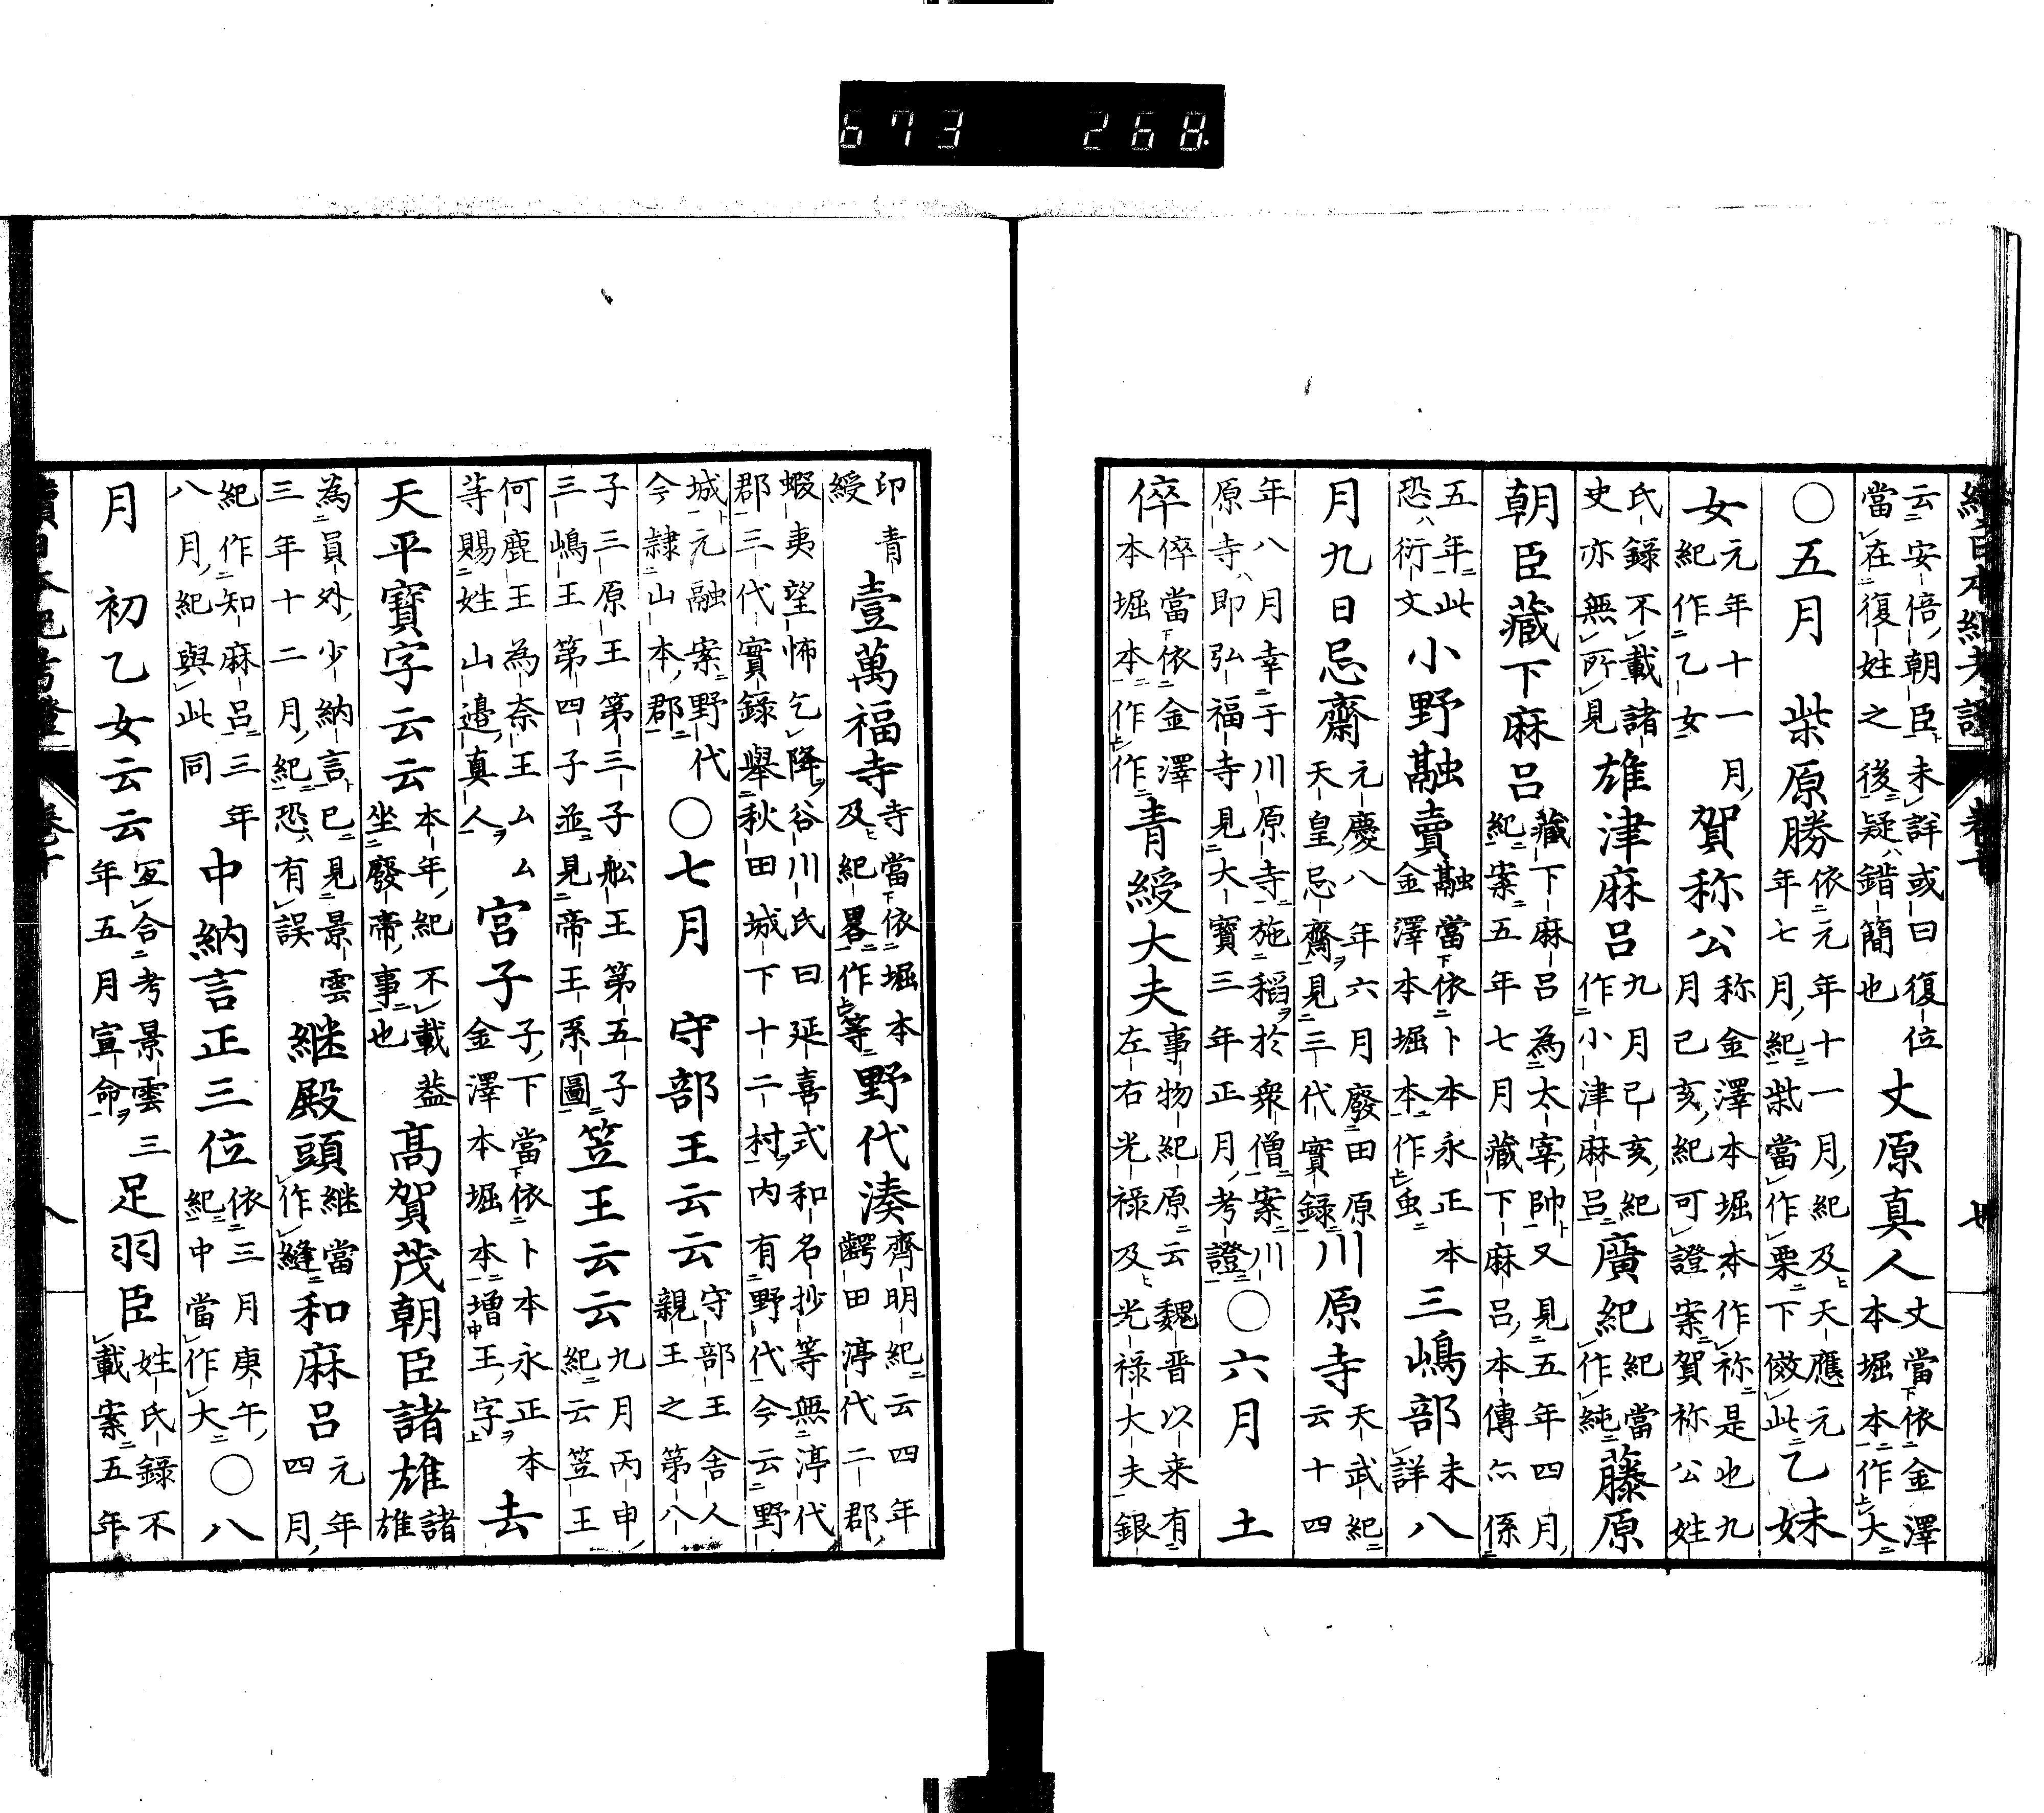 673 268.
云安倍朝臣未詳或曰復位
當在復姓之後疑錯簡也
丈原真人
丈當依金澤
本堀本作大
○五月 柴原勝
依元年十一月紀及天應元
年七月紀柴當作栗下傚此
乙妹
女
元年十一月
紀作乙女
賀称公
称金澤本堀本作祢是也九
月己亥紀可證案賀祢公姓
氏録不載諸
史亦無所見
雄津麻呂
九月己亥紀
作小津麻呂
廣紀
紀當
作純
藤原
朝臣藏下麻呂
藏下麻呂為太宰帥又見五年四月
紀案五年七月藏下麻呂本傳亦係
五年此
恐衍文
小野䶎賣
䶎當依卜本永正本
金澤本堀本作虫
三嶋部
未
詳
八
月九日忌齋
元慶八年六月廢田原
天皇忌齋見三代實録
川原寺
天武紀
云十四
年八月幸于川原寺施稻於衆僧案川
原寺即弘福寺見大寶三年正月考證
○六月 土
倅
倅當依金澤
本堀本作作
青綬大夫
事物紀原云魏晋以来有
左右光禄及光禄大夫銀
印青
綬
壹萬福寺
寺當依堀本
及紀畧作等
野代湊
齊明紀云四年
齶田渟代二郡
蝦夷望怖乞降谷川氏曰延喜式和名抄等無渟代
郡三代實録舉秋田城下十二村内有野代今云野
城元融案野代
今隷山本郡
○七月 守部王云云
守部王舎人
親王之第八
子三原王第三子船王第五子
三嶋王第四子並見帝王系圖
笠王云云
九月丙申
紀云笠王
何鹿王為奈王厶厶
等賜姓山邊真人
宮子
子下當依卜本永正本
金澤本堀本増王字
去
天平寳字云云
本年紀不載蓋
坐廢帝事也
高賀茂朝臣諸雄
諸
雄
為員外少納言已見景雲
三年十二月紀恐有誤
継殿頭
継當
作縫
和麻呂
元年
四月
紀作知麻呂三年
八月紀與此同
中納言正三位
依三月庚午
紀中當作大
○八
月 初乙女云云
宜合考景雲三
年五月宣命
足羽臣
姓氏録不
載案五年